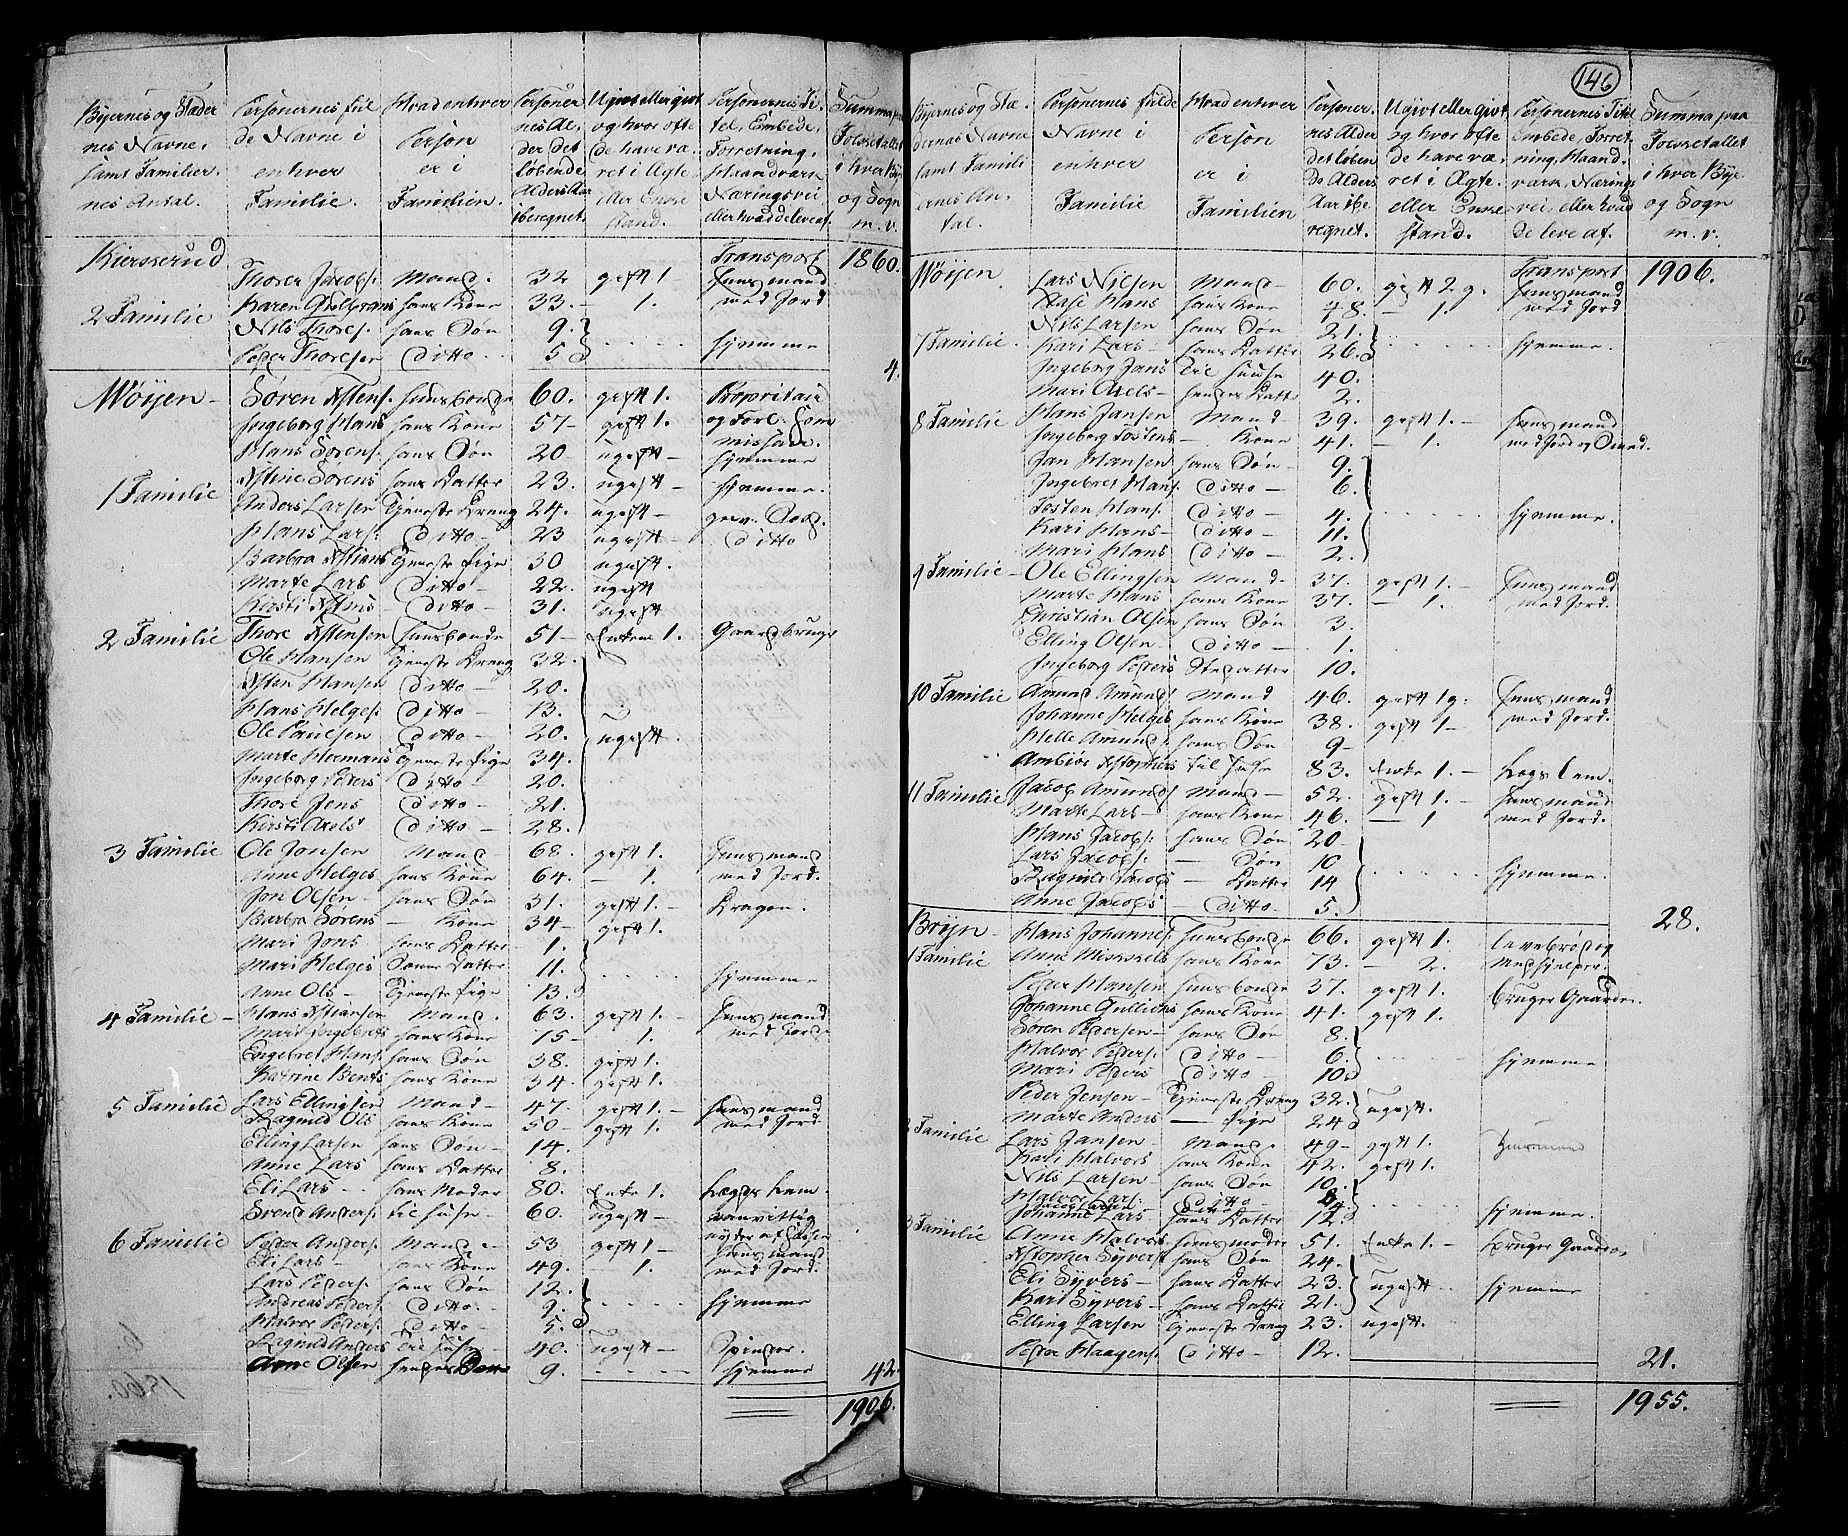 146
Byernes og Stæder
nes Navne,
samt Familier
nes Antal.
Personernes ful
de Navne i
enhver
Familie.
Hvad enhver
Person
er i
Familien.
Personer
nes Al-
der Det
løbende
Alders Aar
iberegnet.
Ugivt eller givt
og hvor ofte
de have væ
ret i Ægte
eller Enke
stand.
Personernes Ti-
tel, Embede,
Forretning,
Haandværk
Næringsvei
eller hvad de leve af.
Summa paa
Folketallet
i hver Bye
og Sogn
m. v.
Kierserud Transport 1860.
Thorer Jacobs: Mand 32 gift 1 Huusmand
2 Familie Karen Gulbrans hans Kone 33. — 1. med Jord
Nils Thores: hans Søn 9.
Peder Thoresen Ditto 5 hjemme
4.
Wøyen - Søren Astens: Huusbonde 60. gift 1. Propritair
Ingeborg Hans hans Kone 57 - gift 1. og Forl: Com
Hans Sørens: hans Søn 20 ugift - missair.
hjemme
1 Familie Astine Sørens hans Datter 23. ugift - hjemme.
Anders Larsen Tjeneste Dreng 24. ugift - gev: Sold.
Hans Lars: Ditto 23 ugift - Ditto
Barbra Astians Tjeneste Pige 30 ugift.
Marte Lars Ditto 22. ugift
Kirsti Astens Ditto 31. ugift
2 Familie Thore Astensen Huusbonde 51 - Enkem 1. Gaardbruger
Ole Hansen Tjeneste Dreng 32.
Asten Hansen Ditto 20.
Hans Helges: Ditto 13.
Ole Paulsen Ditto 20. ugift.
Marte Hermans Tjeneste Pige 34.
Ingeborg Peders Ditto 20.
Thore Jens Ditto 21.
Kirsti Axels Ditto 28.
3 Familie Ole Jonsen Mand 68. gift 1. Huusmand
Anne Helges hans Kone 64. — 1. med Jord.
Jon Olsen hans Søn 31. gift 1. Dragon.
Barbra Sørens Kone 34 - gift 1.
Mari Jons hans Datter 1.
Mari Helges Sønne Datter 11. hjemme
Anne Ols Tjeneste Pige 13.
4 Familie Hans Astiansen Mand 63. gift 1. Huusmand
Marit Ingebrets hans Kone 75 — 1. med Jord
Engebret Hans: hans Søn 38. gift 1.
Katrine Bents hans Kone 34. gift 1.
5 Familie Lars Ellingsen Mand 47. gift 1. Huusmand
Ragnild Ols hans Kone 50 - gift 1. med Jord.
Elling Larsen hans Søn 14.
Anne Lars hans Datter 8.
Eli Lars hans Moder 80. Enke 1. Lægds Lem.
Svend Anders: til Huuse 60. ugift - vanvittig
nyder af Cassen
6 Familie Peder Anders: Mand 53 gift 1 Huusmand
Eli Lars hans Kone 49. 1. med Jord.
Lars Peders: hans Søn 12.
Andreas Peders: Ditto 9. hjemme
Halvor Peders: Ditto 5.
Ragnild Anders til Huuse 40. ugift Spinder.
Anne Olsen hendes Datter 9. hjemme 42.
1906.
Byernes og Stæ
dernes Navne
samt Famili
ernes An-
tal.
Personernes fulde
Navne i
enhver
Familie
Hvad enhver
Person
er i
Familien
Personer
nes Alder
det løben
de Alders
Aar ibe
regnet.
Ugivt eller Givt
og hvor ofte
de have væ
ret i Ægte.
eller Enke
stand.
Personernes Titel
Embede, Forret
ning, Haand-
værk, Nærings
vei, eller hvad
De leve af.
Summa paa
Folketallet
i hver Bye
og Sogn
m. v.
Wøyen Transport 1906.
Lars Nilsen Mand 60. gift 2 g. Huusmand
Aase Hans hans Kone 48. — 1. med Jord
Nils Larsen hans Søn 21.
7 Familie. Kari Lars hans Datter 26. hjemme.
Ingeborg Jans til Huuse 40.
Mari Axels hendes Datt 2.
8 Familie Hans Jansen Mand 39. gift 1. Huusmand
Ingeborg Tostens Kone 41. — 1. med Jord og Smed.
Jan Hansen hans Søn 9.
Ingebret Hans: Ditto 6.
Tosten Hans: Ditto 4. hjemme.
Kari Hans Ditto 11.
Mari Hans Ditto 2.
9 Familie Ole Ellingsen Mand 37. gift 1. Huusmand
Marte Hans hans Kone 37. — 1. med Jord.
Christian Olsen hans Søn 3.
Elling Olsen Ditto 1.
Ingeborg Peders Stedatter 10.
10 Familie Amund Amunds: Mand 46. gift 1 g: Huusmand
Johanne Helges hans Kone 38. gift 1 med Jord.
Helle Amunds: hans Søn 9 -
Ambiør Astophers til Huuse 83. Enke 1. Lægs Lem.
11 Familie Jacob Amunds: Mand 52. gift 1. Huusmand
Marte Lars hans Kone 46. — 1 med Jord.
Hans Jacobs: hans Søn 20
Lars Jacobs: — Søn 10
Ragnild Jacobs — Datter 14 hjemme.
Anne Jacobs Ditto 5. 28.
Bryn Hans Johannes: Huusbonde 66. gift 1. levebrød og
1 Familie Anne Mickels hans Kone 73. — 2.
Peder Hansen Huusbonde 37. gift 1. bruger Gaarden.
Johanne Gullions hans Kone 41. gift 1.
Søren Pedersen hans Søn 8.
Halvor Peders: Ditto 6. hjemme
Mari Peders Ditto 10
Peder Jensen Tjeneste Dreng 32. ugift.
Marte Anders — Pige 24
2 Familie Lars Jansen Mand 49 - gift 1. Huusmand
Kari Halvors hans Kone 42. gift 1.
Nils Larsen hans Søn 10.
Halvor Lars: Ditto 8.
Jacob Larsen Ditto 4. hjemme.
Johanne Lars hans Datter 12.
3 Familie Anne Halvors Huusmoder 51. Enke 1. bruger Gaarden
Astopher Syvers: hans Søn 24.
Eli Syvers hans Datter 23. ugift hjemme
Kari Syvers hans Datte 21.
Elling Larsen Tjeneste Dreng 23. ugift.
Peder Haagens: Ditto 12. 21.
1955.